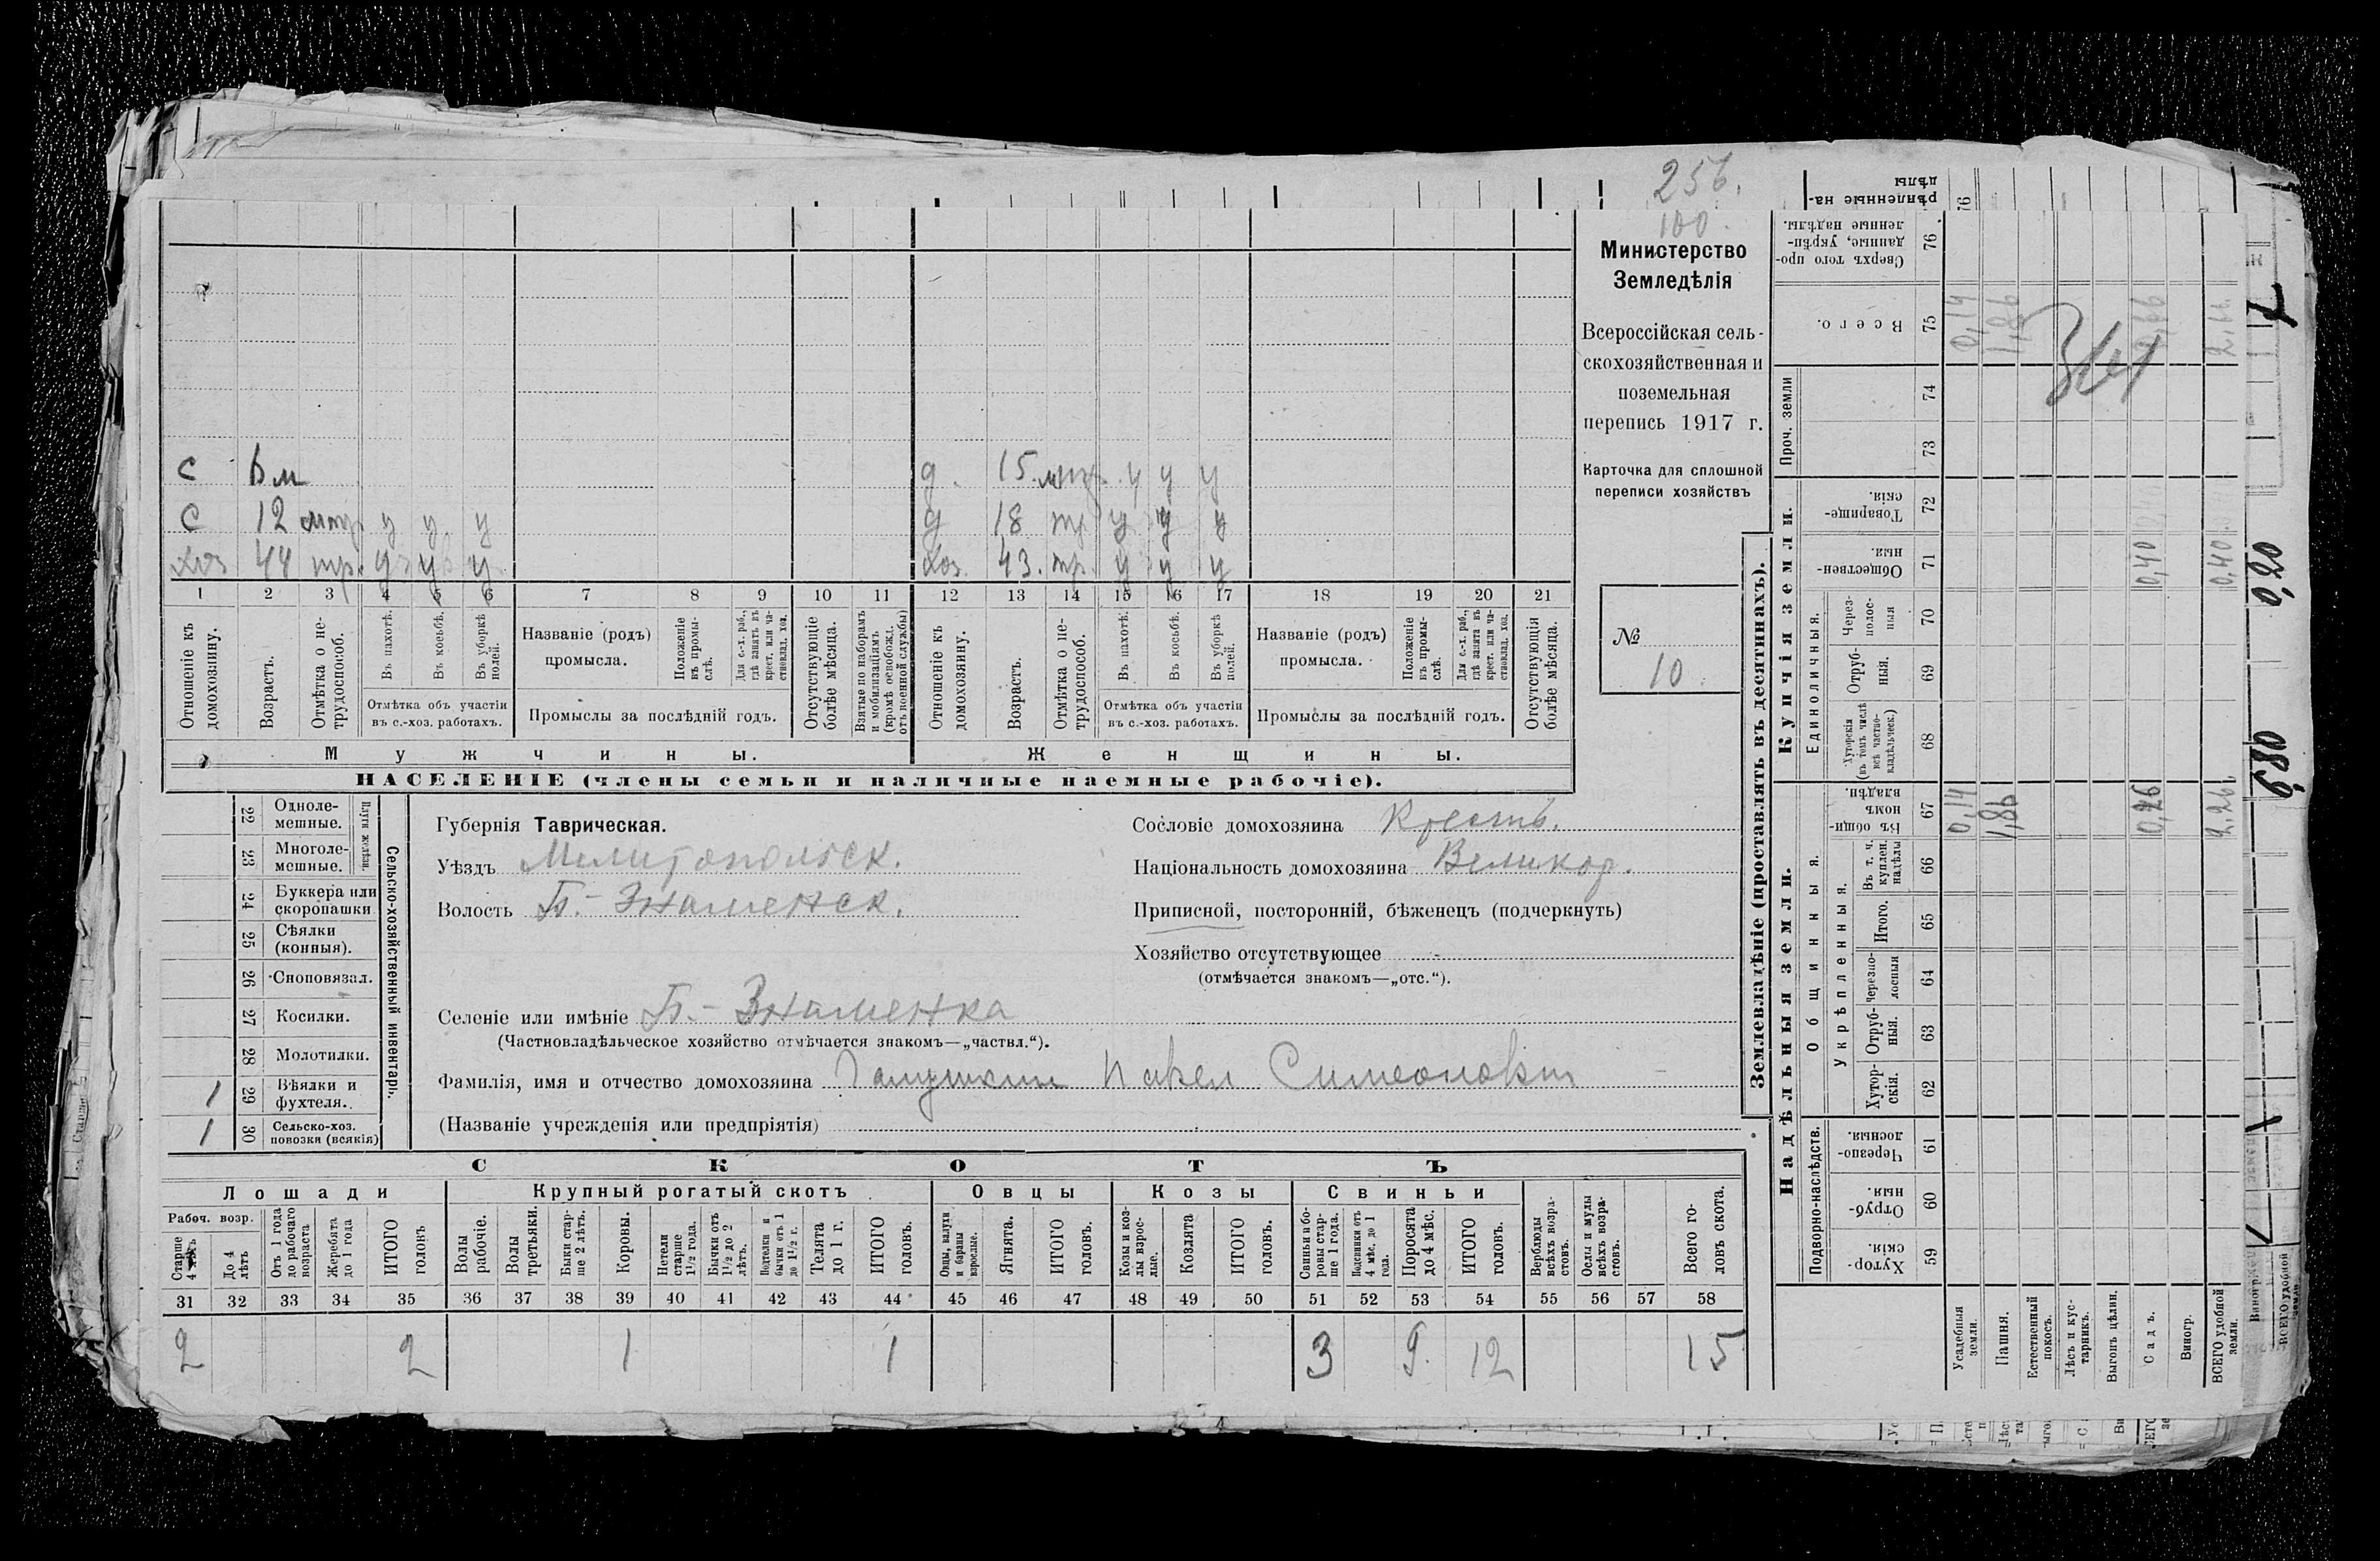 256.
100.
Министерство
Земледѣлія
Всероссійская сель-
скохозяйственная и
поземельная
перепись 1917 г.
Карточка для сплошной
переписи хозяйствъ
№
10
с 6 м
с 12 у у у
хоз 44 тр. у у у
д. 15 у у у
д 18 тр у у у
хоз. 43. тр. у у у
1 2 3 4 5 6 7 8 9 10 11 12 13 14 15 16 17 18 19 20 21
Отношеніе къ домохозяину.
Возрастъ.
Отмѣтка о не-трудоспособ.
Въ пахотѣ.
Въ косьбѣ.
Въ уборкѣ полей.
Отмѣтка объ участіи
въ с.-хоз. работахъ.
Названіе (родъ)
промысла.
Положеніе въ промы-слѣ.
Для с.-х. раб., гдѣ занятъ въ крест. или ча-стновлад. хоз.
Промыслы за послѣдній годъ.
Отсутствующіе болѣе мѣсяца.
Взятые по наборамъ и мобилизаціямъ (кромѣ освобожд. отъ военной службы)
Отношеніе къ домохозяину.
Возрастъ.
Отмѣтка о не-трудоспособ.
Въ пахотѣ.
Въ косьбѣ.
Въ уборкѣ полей.
Отмѣтка объ участіи
въ с.-хоз. работахъ.
Названіе (родъ)
промысла.
Положеніе въ промы-слѣ.
Для с.-х. раб., гдѣ занята въ крест. или ча-стновлад. хоз.
Промыслы за послѣдній годъ.
Отсутствующія болѣе мѣсяца.
Мужчины.
Женщины.
НАСЕЛЕНІЕ (члены семьи и наличные наемные рабочіе).
22 Одноле-мешные.
23 Многоле-мешные.
Плуги желѣзн.
24 Буккера или скоропашки
25 Сѣялки (конныя).
26 Сноповязал.
27 Косилки.
28 Молотилки.
1 29 Вѣялки и фухтеля.
1 30 Сельско-хоз. повозки (всякія)
Сельско-хозяйственный инвентарь.
Губернія Таврическая.
Уѣздъ Мелитопольск.
Волость Б.-Знаменск.
Сословіе домохозяина Крестъ.
Національность домохозяина Великор.
Приписной, посторонній, бѣженецъ (подчеркнуть)
Хозяйство отсутствующее -
(отмѣчается знакомъ—„отс.“).
Селеніе или имѣніе Б.-Знаменка
(Частновладѣльческое хозяйство отмѣчается знакомъ—„частвл.“).
Фамилія, имя и отчество домохозяина Павел Симеонович
(Названіе учрежденія или предпріятія)
СКОТЪ
Лошади
Крупный рогатый скотъ
Овцы
Козы
Свиньи
Рабоч. возр.
Старше 4 лѣтъ
До 4 лѣтъ
Отъ 1 года до рабочаго возраста
Жеребята до 1 года
ИТОГО головъ
Волы рабочіе.
Волы третьяки.
Быки стар-ше 2 лѣтъ.
Коровы.
Нетели старше 1½ года.
Бычки отъ 1½ до 2 лѣтъ.
Подтелки и бычки отъ 1 до 1½ г.
Телята до 1 г.
ИТОГО головъ.
Овцы, валухи и бараны взрослые.
Ягнята.
ИТОГО головъ.
Козы и коз-лы взрос-лые.
Козлята
ИТОГО головъ.
Свиньи и бо-ровы стар-ше 1 года.
Подсвинки отъ 4 мѣс. до 1 года.
Поросята до 4 мѣс.
ИТОГО головъ.
Верблюды всѣхъ возра-стовъ.
Ослы и мулы всѣхъ возра-стовъ.
Всего го-ловъ скота.
31 32 33 34 35 36 37 38 39 40 41 42 43 44 45 46 47 48 49 50 51 52 53 54 55 56 57 58
2 2 1 1 3 9. 12 15
Землевладѣніе (проставлять въ десятинахъ).
Надѣльныя земли.
Купчія земли.
Проч. земли
Подворно-наслѣдств.
Общинныя.
Укрѣпленныя.
Единоличныя.
Хутор-скія. 59
Отруб-ныя. 60
Черезпо-лосныя. 61
Хутор-скія. 62
Отруб-ныя. 63
Черезпо-лосныя 64
Итого. 65
Въ т. ч. куплен. надѣлы 66
Въ общи-номъ владѣн. 67
Хуторскія (въ томъ числѣ всѣ частно-владѣльческ.) 68
Отруб-ныя. 69
Через-полос-ныя 70
Обществен-ныя. 71
Товарище-скія. 72
73
74
Всего. 75
Сверхъ того про-данные, укрѣп-ленные надѣлы. 76
Усадебныя земли. 0,14 0,14
Пашня. 1,86 1,86
Естественный покосъ.
Лѣсъ и кус-тарникъ.
Выгонъ цѣлин.
Садъ. 0,26 0,40 0,66
Виногр.
ВСЕГО удобной земли. 2,26 0,40 2,66
рѣпленные на-
дѣлы
76
0,20
Виноград
ВСЕГО удобной земли